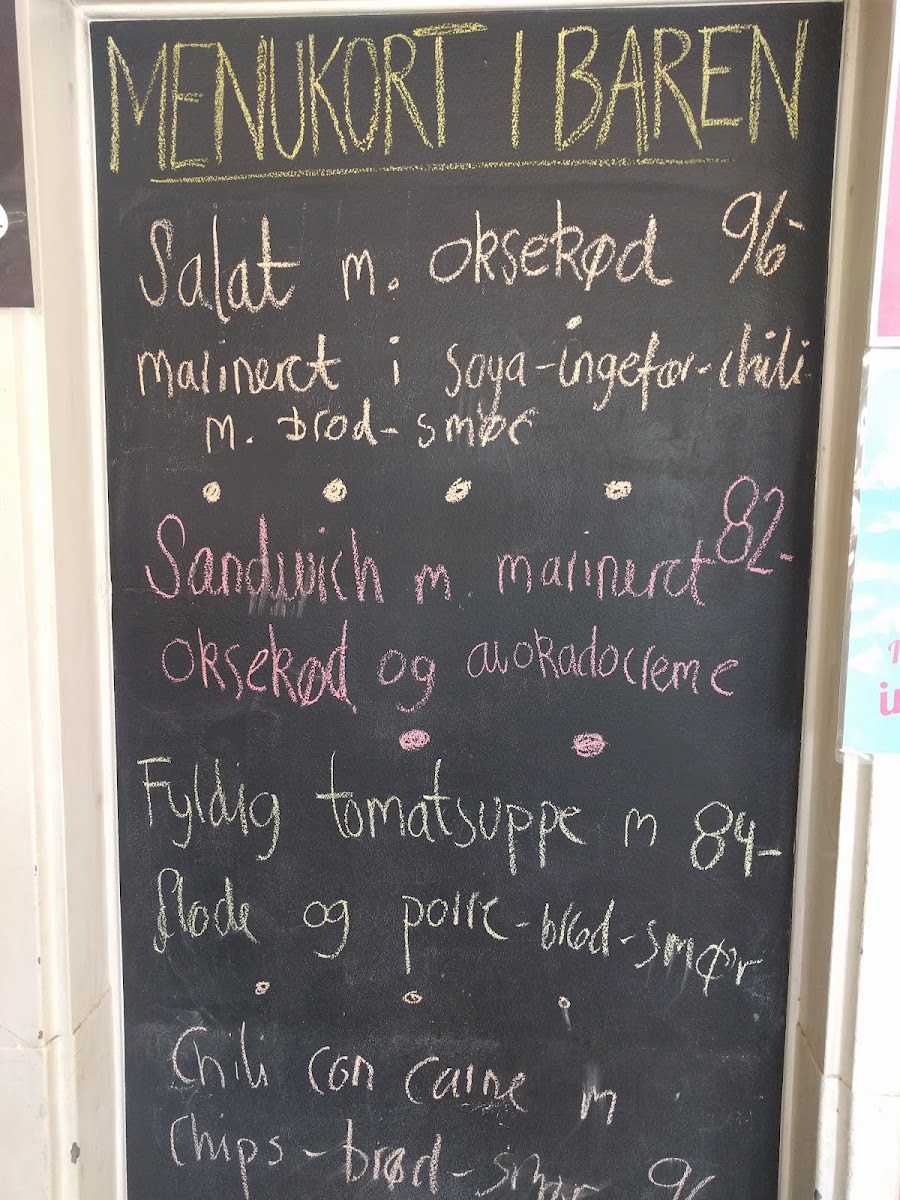 MENUKORT I BAREN
Salat m. oksekød 96,-
marineret i soya-ingefær-chili
m. brød-smør
Sandwich m. marineret 82,-
oksekød og avokadocreme
Fyldig tomatsuppe m 84,-
fløde og porre-brød-smør
Chili con carne m
chips-brød-smør 96